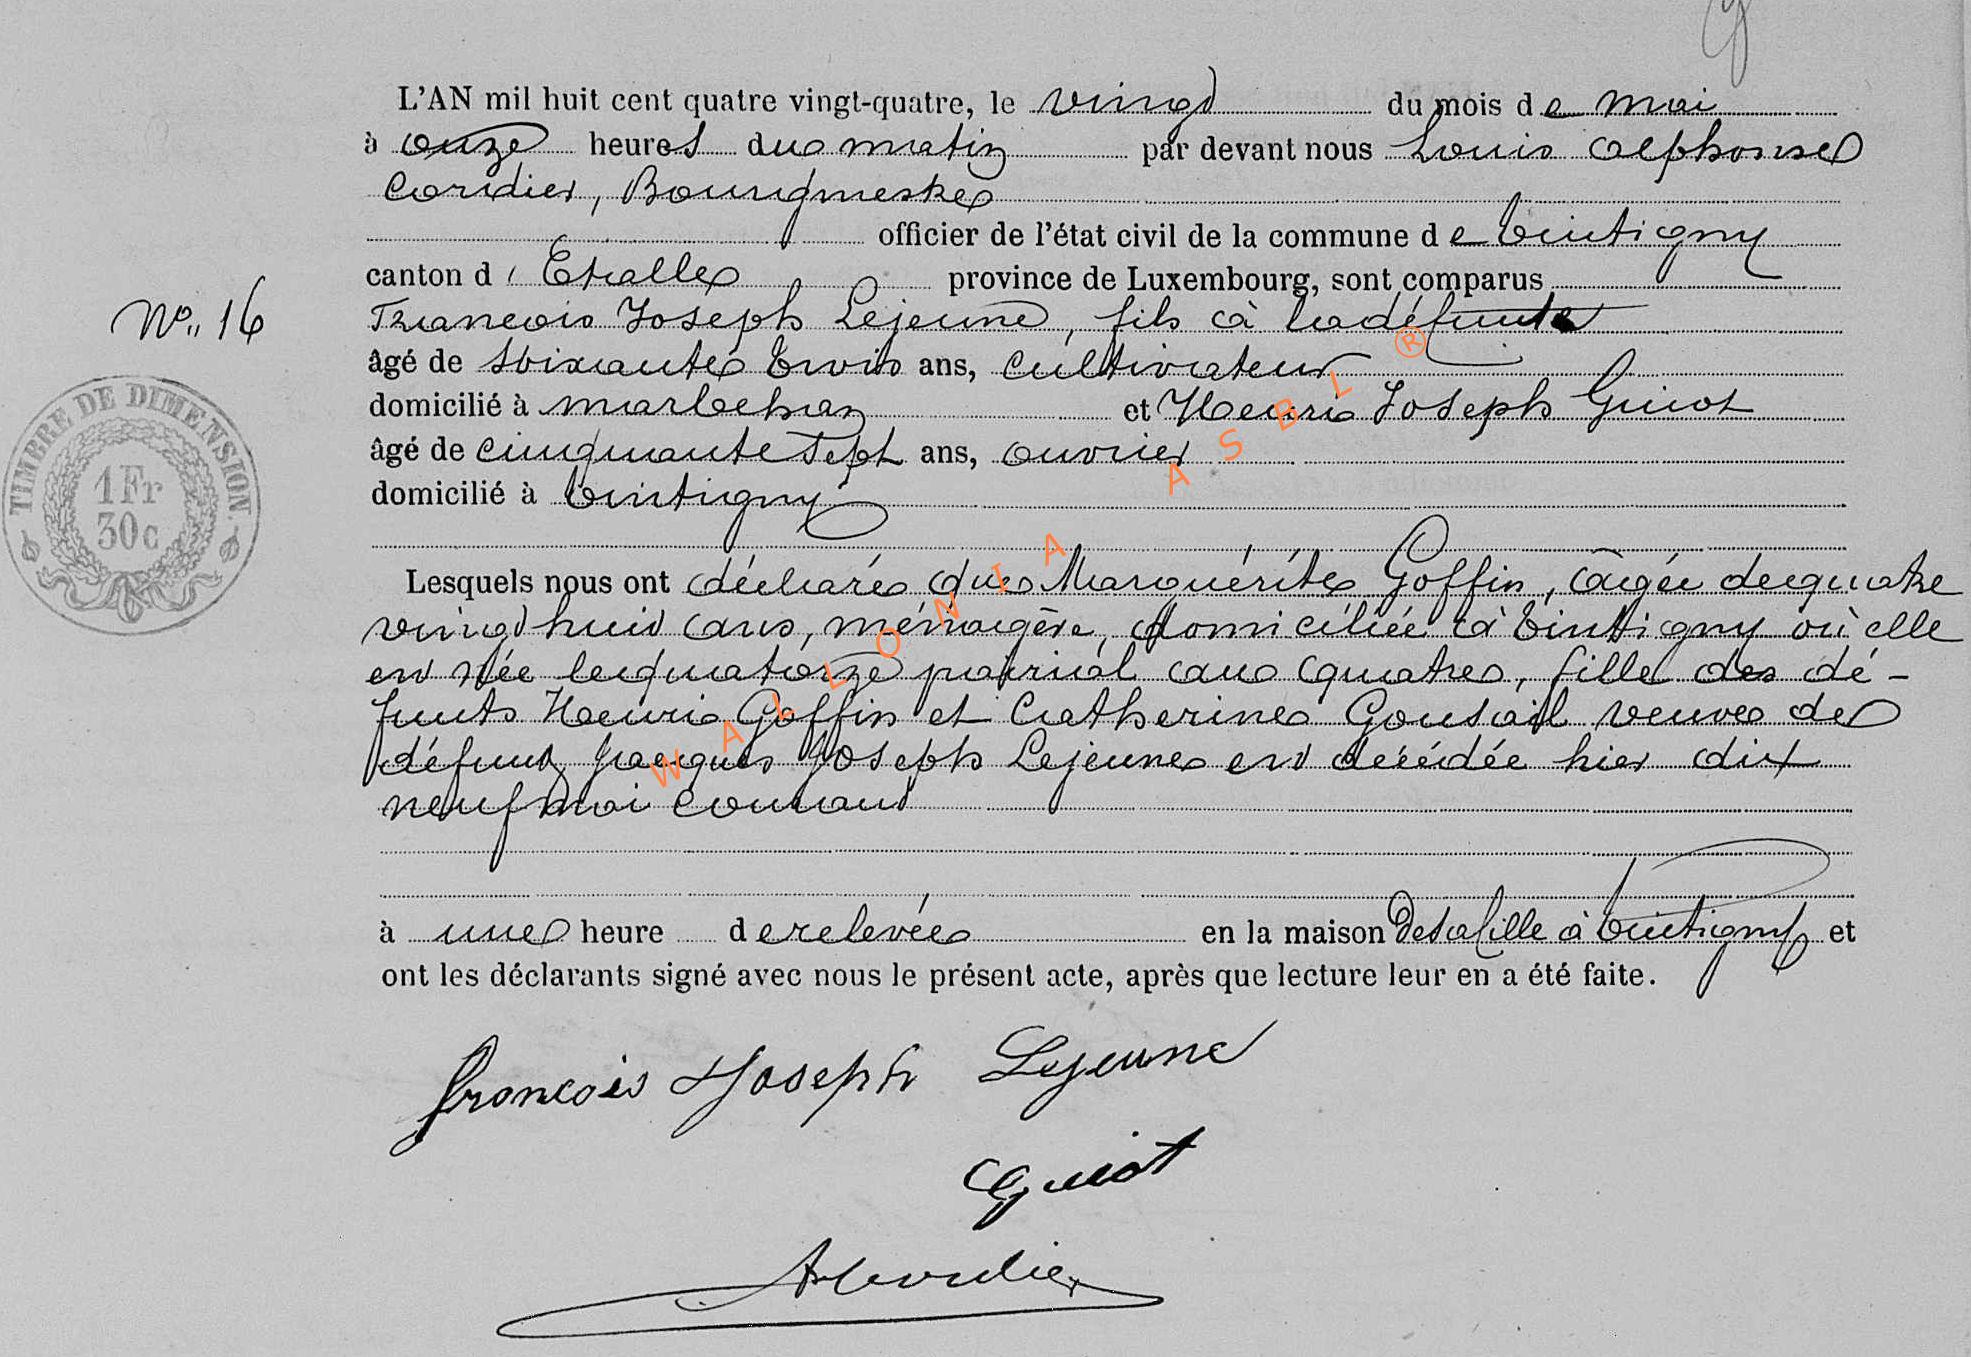 L'AN mil huit cent quatre vingt-quatre, le vingt du mois de mai
à onze heures du matin par devant nous Louis Alphonse
Cordier, Bourgmestre
officier de l'état civil de la commune de Tintigny
canton d'Etalle province de Luxembourg, sont comparus
No. 16
Francois Joseph Lejeune, fils à la défunte
âgé de soixante trois ans, cultivateur
domicilié à Marbehan et Henri Joseph Guiot
âgé de cinquante sept ans, ouvrier
domicilié à Tintigny
TIMBRE DE DIMENSION.
1 Fr
30c
Lesquels nous ont déclaré que Marguérite Goffin, âgée de quatre
vingt huit ans, ménagère, domiciliée à Tintigny où elle
est née le quatorze prairial an quatre, fille des dé-
funts Henri Goffin et Catherine Gousail veuve de
défunt Jacques Joseph Lejeune est décédée hier dix
neuf mai courant
à une heure de relevée en la maison de sa fille à Tintigny et
ont les déclarants signé avec nous le présent acte, après que lecture leur en a été faite.
François Joseph Lejeune
Guiot
ACordier
WALLONIA ASBL ®